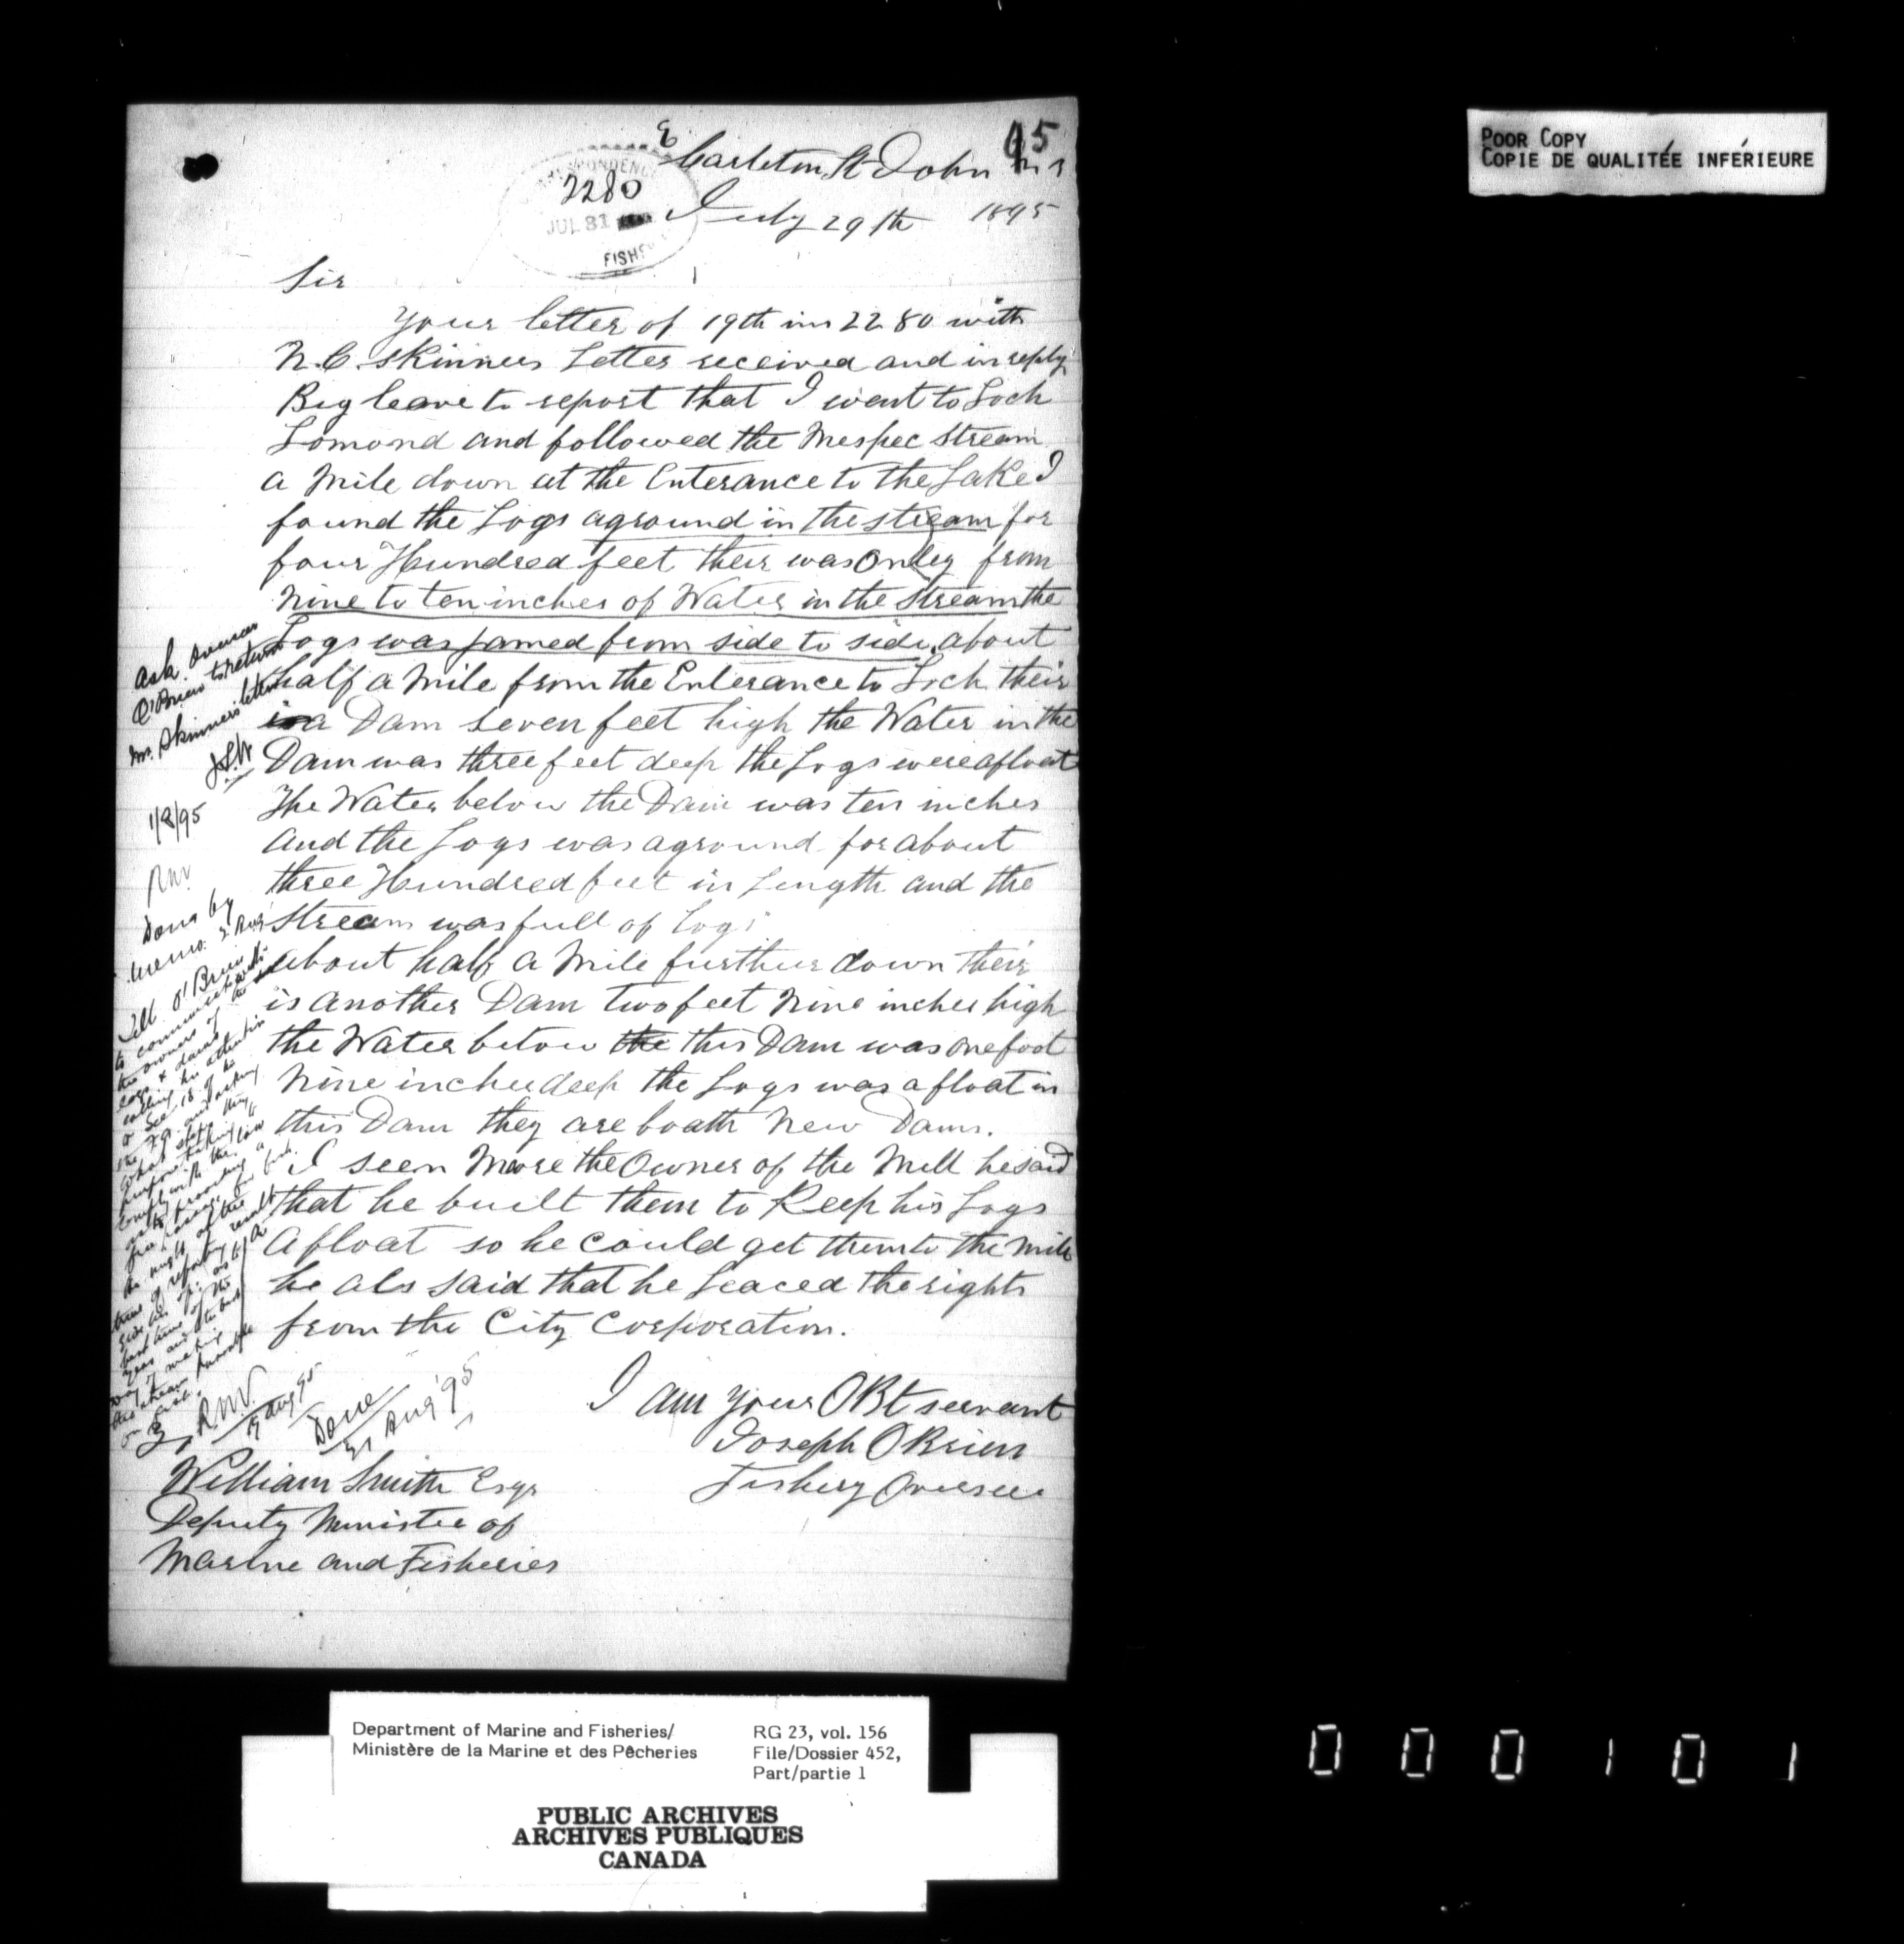 65
Carleton St John N B
July 29th 1895
CORRESPONDENCE
2280
JUL 31
FISH
Sir
Your letter of 19th ins 2280 with
N. C. Skinners Letter received and in reply
Beg leave to report that I went to Loch
Lomond and followed the Mespec Stream
a Mile down at the Enterance to the Lake I
found the Logs aground in the stream for
four Hundred feet their was Onley from
Nine to ten inches of Water in the Stream the
Logs was Jamed from side to side, about
half a Mile from the Enterance to Loch their
is a Dam seven feet high the Water in the
Dam was three feet deep the Logs were afloat
The Water below the Dam was ten inches
and the Logs was aground for about
three Hundred feet in Length and the
Stream was full of Logs
about half a Mile further down their
is another Dam two feet Nine inches high
the Water below the this Dam was one foot
Nine inches deep the Logs was afloat in
this Dam they are boath New Dams.
I seen More the Owner of the Mill he said
that he built them to Keep his Logs
Afloat so he could get them to the Mill
he als said that he Leaced the rights
from the City Corporation.
I am your OBt servant
Joseph OBrien
Fishery Overseer
To
William Smith Esqr
Deputy Minister of
Marine and Fisheries
Ask Overseer
O'Brien to return
Mr. Skinner's letter
1/8/95
RNV
Done by
memo. 2 Aug
Tell O'Brien
to communicate with
the owners of the
logs & dams
calling his attention
to Sec 18 of the
the F.A. and asking
what steps they
purpose taking to
comply with the law
as to providing a
free passage for fish.
He might at the
time of reporting result
give his op. as to the
best time of the
year and the best
way of making
the stream passable
to fish.
RNV
9 Aug 95
Done
21 Aug '95
POOR COPY
COPIE DE QUALITÉE INFÉRIEURE
Department of Marine and Fisheries/
Ministère de la Marine et des Pêcheries
RG 23, vol. 156
File/Dossier 452,
Part/partie 1
PUBLIC ARCHIVES
ARCHIVES PUBLIQUES
CANADA
000101